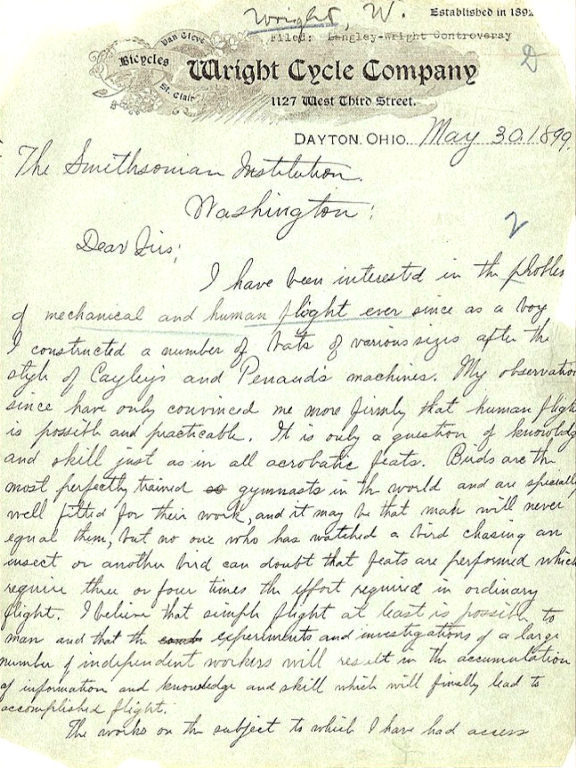 Wright, W.
Established in 1892
Filed: Langley-Wright Controversy
2
Van Cleve
Bicycles
St. Clair
Wright Cycle Company
1127 West Third Street.
DAYTON, OHIO. May 30, 1899.
The Smithsonian Institution.
Washington;
2
Dear Sirs;
I have been interested in the problem
of mechanical and human flight ever since as a boy
I constructed a number of bats of various sizes after the
style of Cayley's and Penaud's machines. My observations
since have only convinced me more firmly that human flight
is possible and practicable. It is only a question of knowledge
and skill just as in all acrobatic feats. Birds are the
most perfectly trained gymnasts in the world and are specially
well fitted for their work, and it may be that man will never
equal them, but no one who has watched a bird chasing an
insect or another bird can doubt that feats are performed which
require three or four times the effort required in ordinary
flight. I believe that simple flight at least is possible to
man and that the experiments and investigations of a large
number of independent workers will result in the accumulation
of information and knowledge and skill which will finally lead to
accomplished flight.
The works on the subject to which I have had access